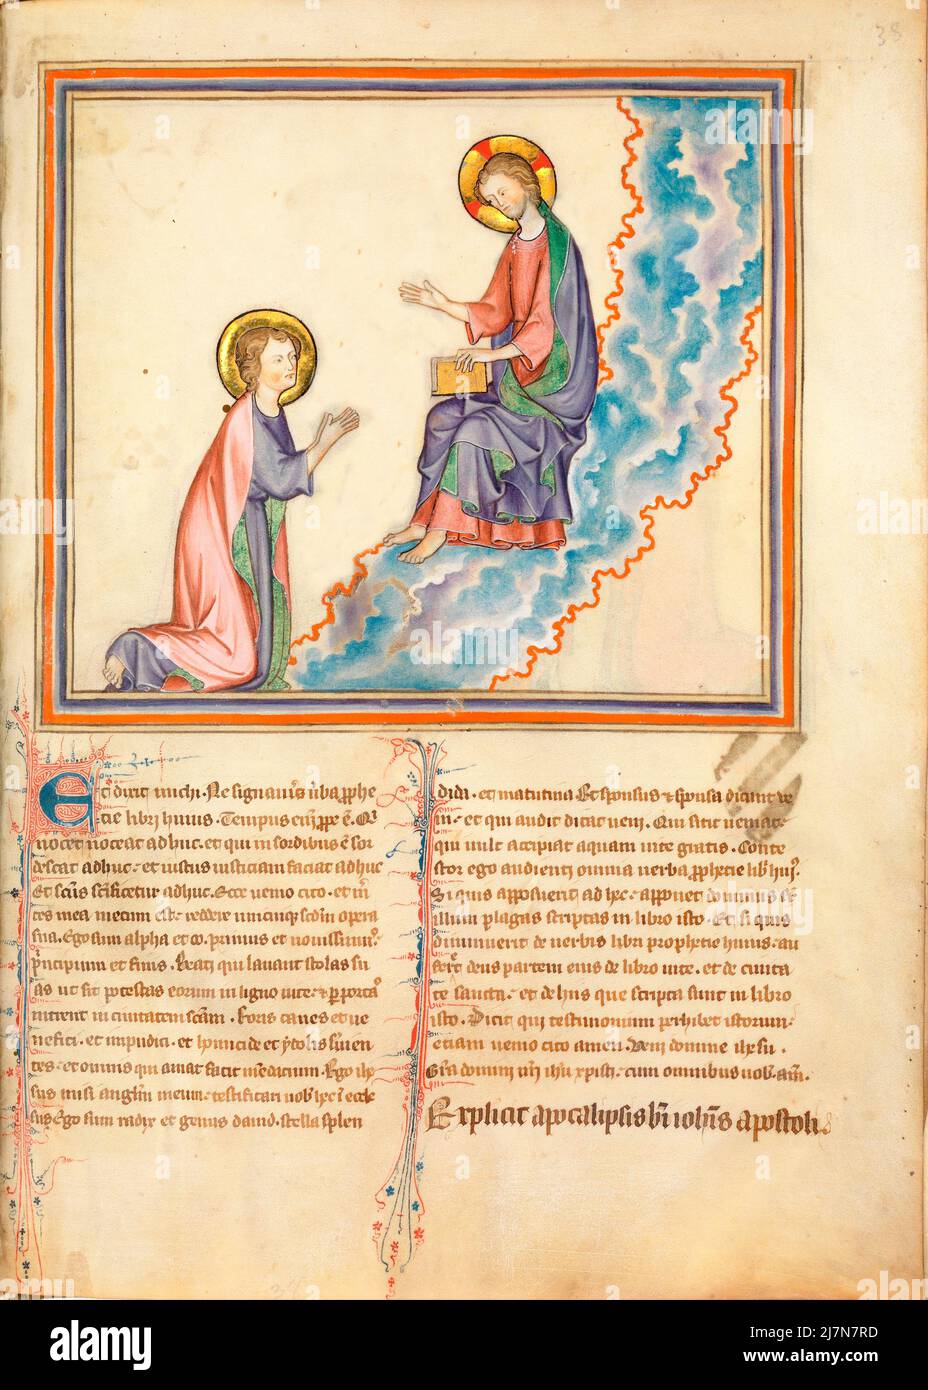 38
Et dixit michi. Ne signaveris verba prophe
tie libri huius. Tempus enim prope est. Qui
nocet noceat adhuc. et qui in sordibus est sor
descat adhuc. et iustus iusticiam faciat adhuc
Et scūs scīficetur adhuc. Ecce venio cito. et m̄
ces mea mecum est. reddere unicuiqꝫ scdm opera
sua. Ego sum alpha et ω. primus et novissimꝰ.
p̄ncipium et finis. Beati qui lavant stolas su
as ut sit potestas eorum in ligno vite. et per portas
intrent in civitatem scām. Foris canes et ve
nefici. et impudici. et homicide et ydolis servien
tes. et omnis qui amat facit mendacium. Ego ihe
sus misi angłm meum. testificari vob hec in eccle
siis Ego sum radix et genus david. stella splen
dida. et matutina Et sponsus et sponsa dicunt ve
ni. et qui audit dicat veni. Qui sitit veniat.
qui vult accipiat aquam vite gratis. Conte
stor ego audienti omnia verba prophecie libri huiꝰ.
Si quis apposuerit ad hec. apponet dominus super
illum plagas scriptas in libro isto. Et si quis
diminuerit de verbis libri prophetie huius. au
feret deus partem eius de libro vite. et de civita
te sancta. et de hiis que scripta sunt in libro
isto. Dicit qui testimonium perhibet istorum.
etiam venio cito amen. Veni domine ihesu.
Gr̄a domini nr̄i ihū xpisti. cum omnibus vob am̄.
Explicit apocalipsis bī iohīs apostoli.
alamy
Image ID: 2J7N7RD
www.alamy.com